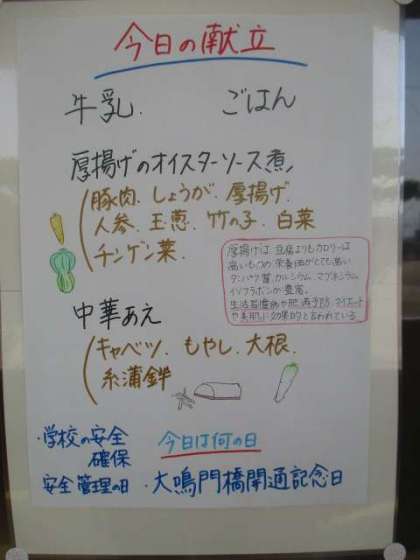 今日の献立
牛乳. ごはん
厚揚げのオイスターソース煮
豚肉.しょうが.厚揚げ.
人参.玉葱.竹の子.白菜
チンゲン菜.
厚揚げは、豆腐よりもカロリーは
高いものの、栄養価がとても高い
タンパク質、カルシウム、マグネシウム
イソフラボンが豊富。
生活習慣病や肥満予防、ダイエット
や美肌に効果的と言われている
中華あえ
キャベツ.もやし.大根.
糸蒲鉾
今日は何の日
・学校の安全
確保
安全管理の日
・大鳴門橋開通記念日